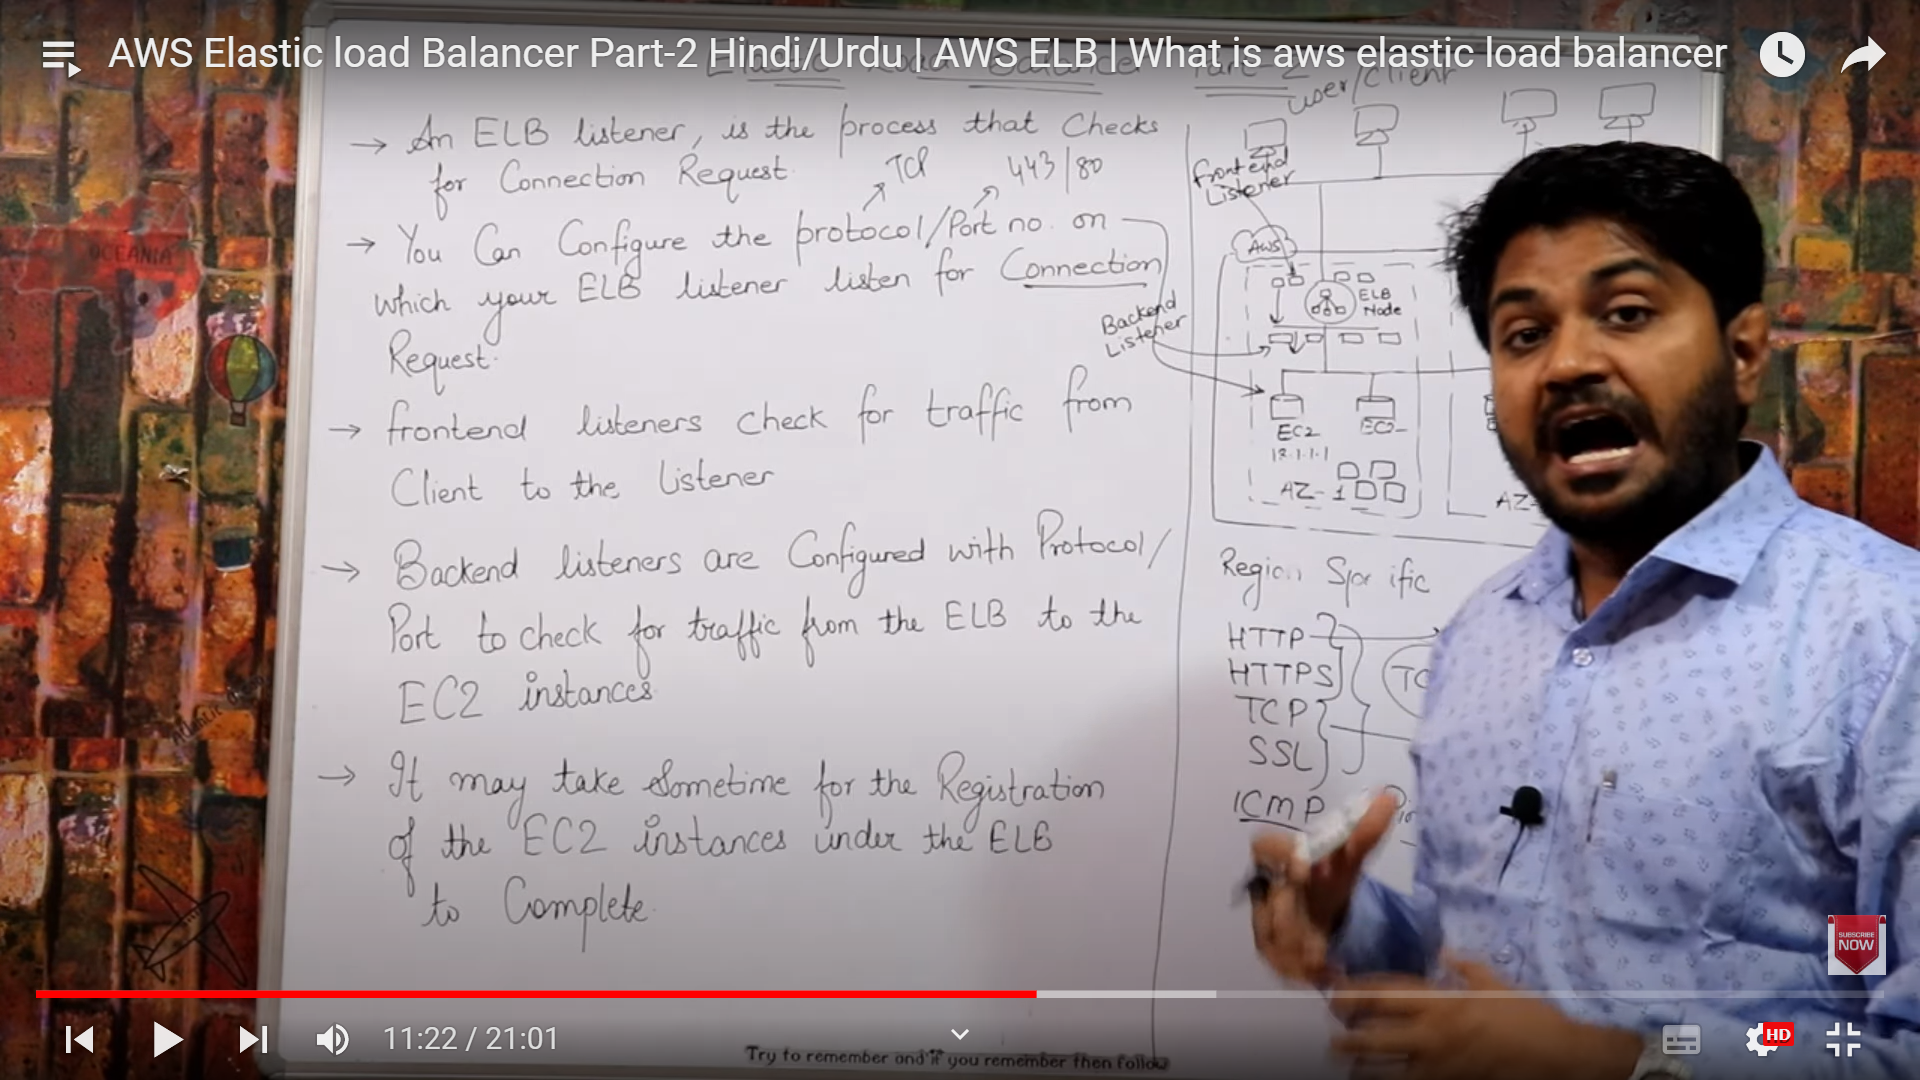 AWS Elastic load Balancer Part-2 Hindi/Urdu | AWS ELB | What is aws elastic load balancer
Elastic Load Balancer Part-2
→ An ELB listener, is the process that Checks
for Connection Request.
TCP 443/80
→ You Can Configure the protocol/Port no. on
which your ELB listener listen for Connection
Request.
→ frontend listeners check for traffic from
Client to the Listener
→ Backend listeners are Configured with Protocol/
Port to check for traffic from the ELB to the
EC2 instances
→ It may take Sometime for the Registration
of the EC2 instances under the ELB
to Complete.
user/client
Frontend
Listener
AWS
ELB
Node
Backend
Listener
EC2 EC2
12.1.1.1
AZ-1
AZ-
Region Specific
HTTP
HTTPS
TCP
SSL
ICMP
SUBSCRIBE
NOW
11:22 / 21:01
HD
Try to remember and if you remember then follow
OCEANIA